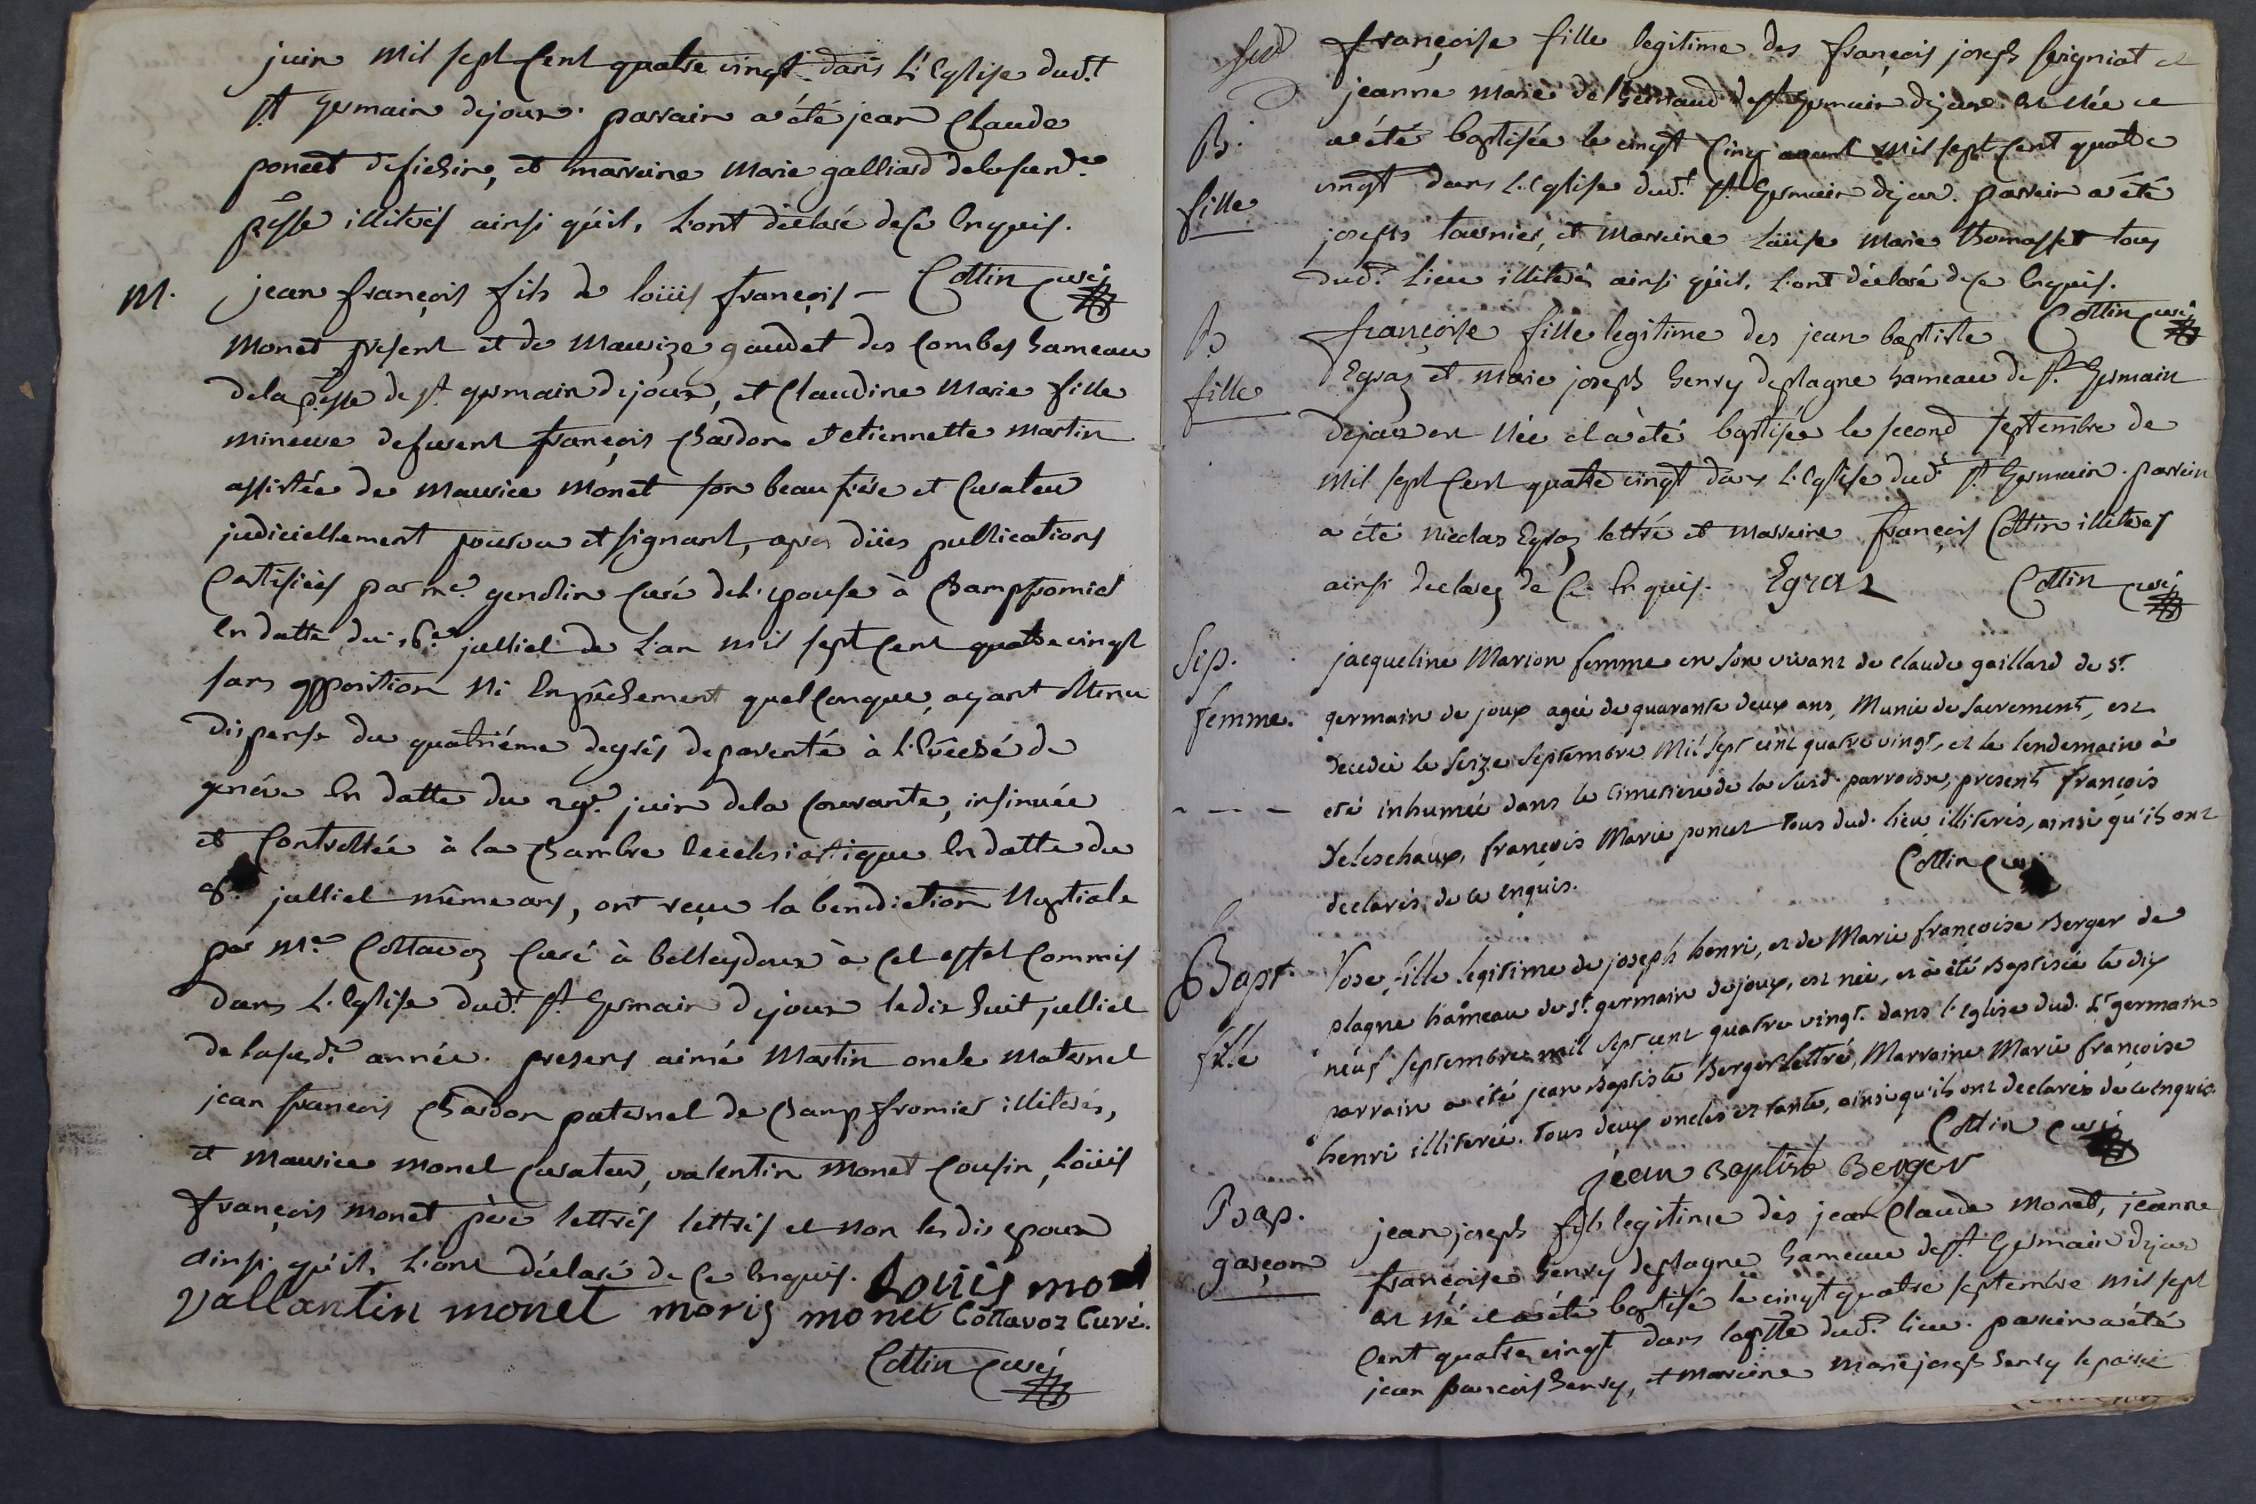 juin mil sept Cent quatre vingt dans L'Eglise dud.t
St germain dejoux. parrain a été jean Claude
poncet , et marraine Marie galliard de la susd.e
psse illiterés ainsi qu'ils L'ont déclaré de Ce Enquis.
Cottin Curé
M.
jean françois fils de loüis françois -
Monet present et de Maurize gaudet des Combes hameau
de la psse de st germain dejoux, et Claudine Marie fille
mineure defunt françois Chardon et etiennette Martin
assistée de Maurice Monet son beau frère et Curateur
judiciellement pourvu et signant, après dües publications
Certifiées par mre gendrin curé de L'epouse à Champfromier
En datte du 16e julliet de L'an mil sept Cent quatre vingt
sans opposition Ni Enpêchement quelConque, ayant obtenu
dispense du quatriéme degrés de parenté à L'Evêché de
genéve En datte du 29e juin de la Courante, insinuée
et Controllée à la Chambre Eecclesiastique En datte du
8e julliet même ans, ont reçu la benediction Nuptiale
par Mre Cottavoz Curé à belleydoux à Cet effet Commis
dans L'Eglise dud.t St Germain dejoux le dix huit julliet
de la susd.e année. presens aimé Martin oncle Maternel
jean françois Chardon paternel de Champfromier illiterés,
et Maurice monet Curateur, valentin Monet Cousin, Loüis
françois monet père lettrés lettrés et non les dis epoux
ainsi qu'ils L'ont déclaré de Ce Enquis. Louis mo
vallantin monet moris monet Cottavoz Curé.
Cottin Curé
B.
fille
françoise fille legitime des françois joseph et
jeanne Marie de St germain dejoux est Née et
a été baptisée le vingt Cinq aoust Mil sept Cent quatre
vingt dans L'Eglise dud.t St Germain dejoux. parrain a été
joseph tournier, et Marraine Loüise Marie thomasset tous
dud.t Lieu illiterés ainsi qu'ils L'ont déclaré de Ce Enquis.
Cottin Curé
B
fille
françoise fille legitime des jean baptiste
Egraz et Marie joseph henry de plagne hameau de St Germain
dejoux est Née et a été baptisée le second septembre de
Mil sept Cent quatre vingt dans L'Eglise dud.t St Germain. parrain
a été Nicolas Egraz lettré et Marraine françois Cottin illiteres
ainsi declarez de Ce Enquis. Egraz Cottin Curé
Sep.
femme.
jacqueline Marion femme en son vivant de Claude gaillard de St
germain de joux agée de quarante deux ans, Munie de Sacrement, est
decedée le Seize Septembre Mil sept cent quatre vingt, et le lendemain à
eté inhumée dans le Cimetiere de la susd. parroisse, present françois
Deleschaux, françois Marie poncet tous dud. lieu illiterés, ainsi qu'ils ont
declarés de ce enquis. Cottin Curé
Bapt
fille
Rose fille legitime de joseph henri, et de Marie françoise Berger de
plagne hameau de St germain de joux, est née, et à été Baptisée le dix
neuf Septembre mil sept cent quatre vingt. dans l'Eglise dud. St germain
parrain a été jean Baptiste Berger lettré, Marraine Marie françoise
henri illiterée. tous deux oncles et tante, ainsi qu'ils ont declarés de ce enquis
Cottin Curé
jean Baptiste Berger
Bap.
garçon
jean joseph fils legitime dès jean Claude Monet, jeanne
françoise henry de plagne hameau de St Germain dejoux
est Né et a été baptisé le vingt quatre septembre mil sept
Cent quatre vingt dans laditte dud.t lieu. parrain a été
jean françois henry, et marraine Marie joseph henry le parrain